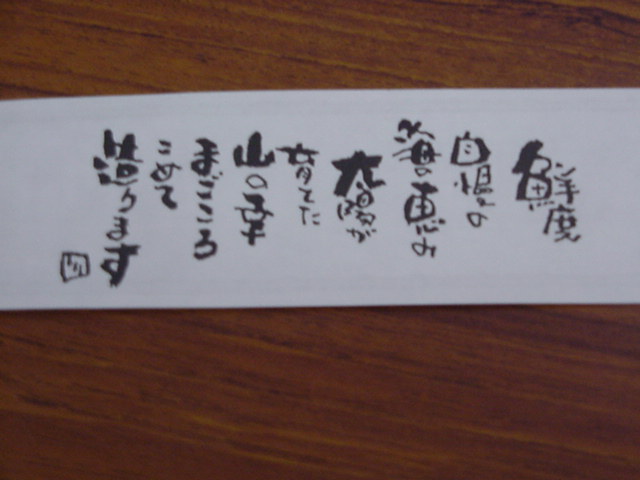 鮮度
自慢の
海の恵み
太陽が
育てた
山の幸
まごころ
こめて
造ります